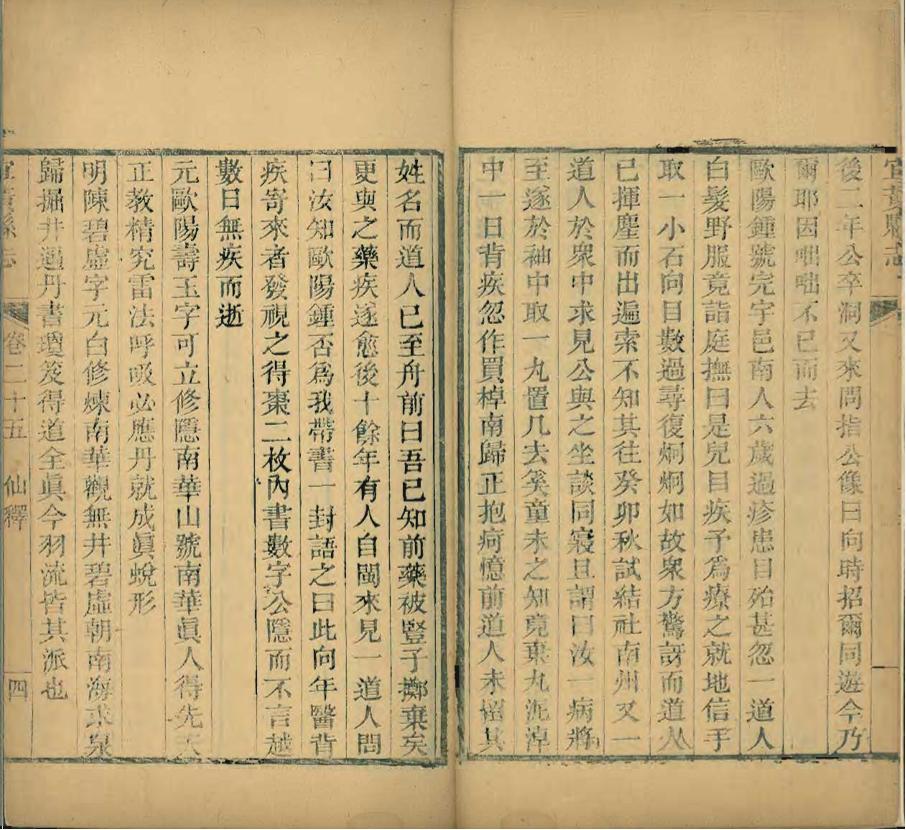 宜黃縣志
後二年公卒洞又來問指公像曰向時招爾同遊今乃
爾耶因咄咄不已而去
歐陽鍾號完宇邑南人六歲過疹患目殆甚忽一道人
白髮野服竟詣庭撫曰是兒目疾予為療之就地信手
取一小石向目數過尋復炯炯如故衆方驚訝而道人
已揮塵而出遍索不知其往癸卯秋試結社南州又一
道人於衆中求見公與之坐談同寢且謂曰汝一病將
至遂於袖中取一丸置几去奚童未之知竟棄丸泥淖
中一日背疾忽作買棹南歸正抱疴憶前道人未留其
姓名而道人已至舟前曰吾已知前藥被豎子擲棄矣
更與之藥疾遂愈後十餘年有人自閩來見一道人問
曰汝知歐陽鍾否為我帶書一封語之曰此向年醫背
疾寄來者發視之得棗二枚內書數字公隱而不言越
數日無疾而逝
元歐陽壽玉字可立修隱南華山號南華眞人得先天
正教精究雷法呼吸必應丹就成眞蛻形
明陳碧虛字元白修煉南華觀無井碧虛朝南海求泉
歸掘井過丹書瓊笈得道全眞今羽流皆其派也
宜黃縣志 卷二十五 仙釋 四